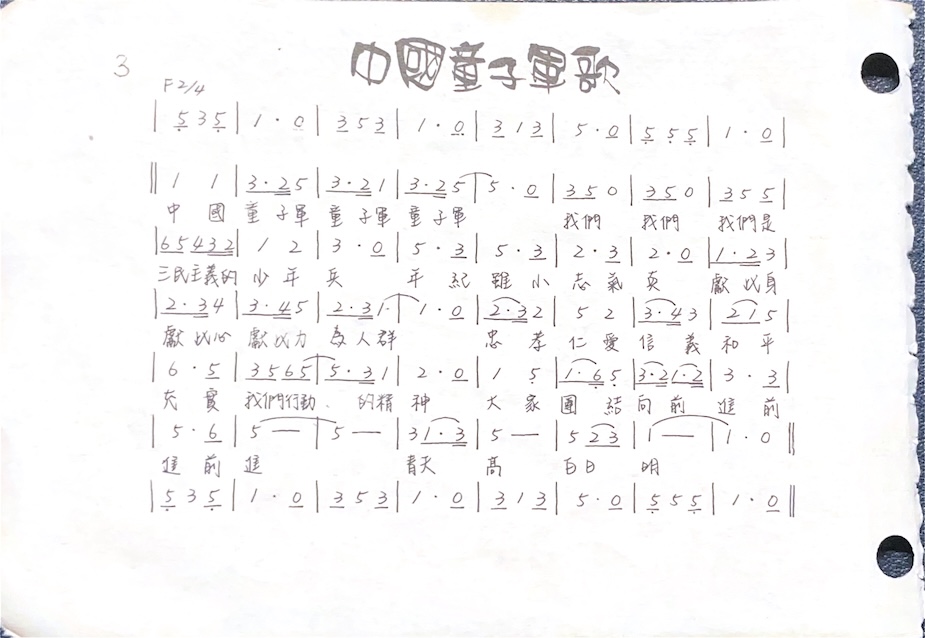 中國童子軍歌
3
F 2/4
| 5 3 5 | 1 · 0 | 3 5 3 | 1 · 0 | 3 1 3 | 5 · 0 | 5 5 5 | 1 · 0 |
‖ 1 1 | 3 · 2 5 | 3 · 2 1 | 3 · 2 5 | 5 · 0 | 3 5 0 | 3 5 0 | 3 5 5 |
中 國 童 子軍 童 子軍 童 子軍 我們 我們 我們是
| 6 5 4 3 2 | 1 2 | 3 · 0 | 5 · 3 | 5 · 3 | 2 · 3 | 2 · 0 | 1 · 2 3 |
三民主義的 少 年 兵 年 紀 雖 小 志 氣 英 獻 此 身
| 2 · 3 4 | 3 · 4 5 | 2 · 3 1 · | 1 · 0 | 2 · 3 2 | 5 2 | 3 · 4 3 | 2 1 5 |
獻 此心 獻 此力 為 人群 忠 孝 仁 愛 信 義 和 平
| 6 · 5 | 3 5 6 5 | 5 · 3 1 | 2 · 0 | 1 5 | 1 · 6 5 | 3 · 2 1 · 2 | 3 · 3 |
充 實 我們行動、 的精 神 大 家 團 結 向 前 進 前
| 5 · 6 | 5 — | 5 — | 3 1 · 3 | 5 — | 5 2 3 | 1 — | 1 · 0 ‖
進 前 進 青天 高 白日 明
| 5 3 5 | 1 · 0 | 3 5 3 | 1 · 0 | 3 1 3 | 5 · 0 | 5 5 5 | 1 · 0 ‖